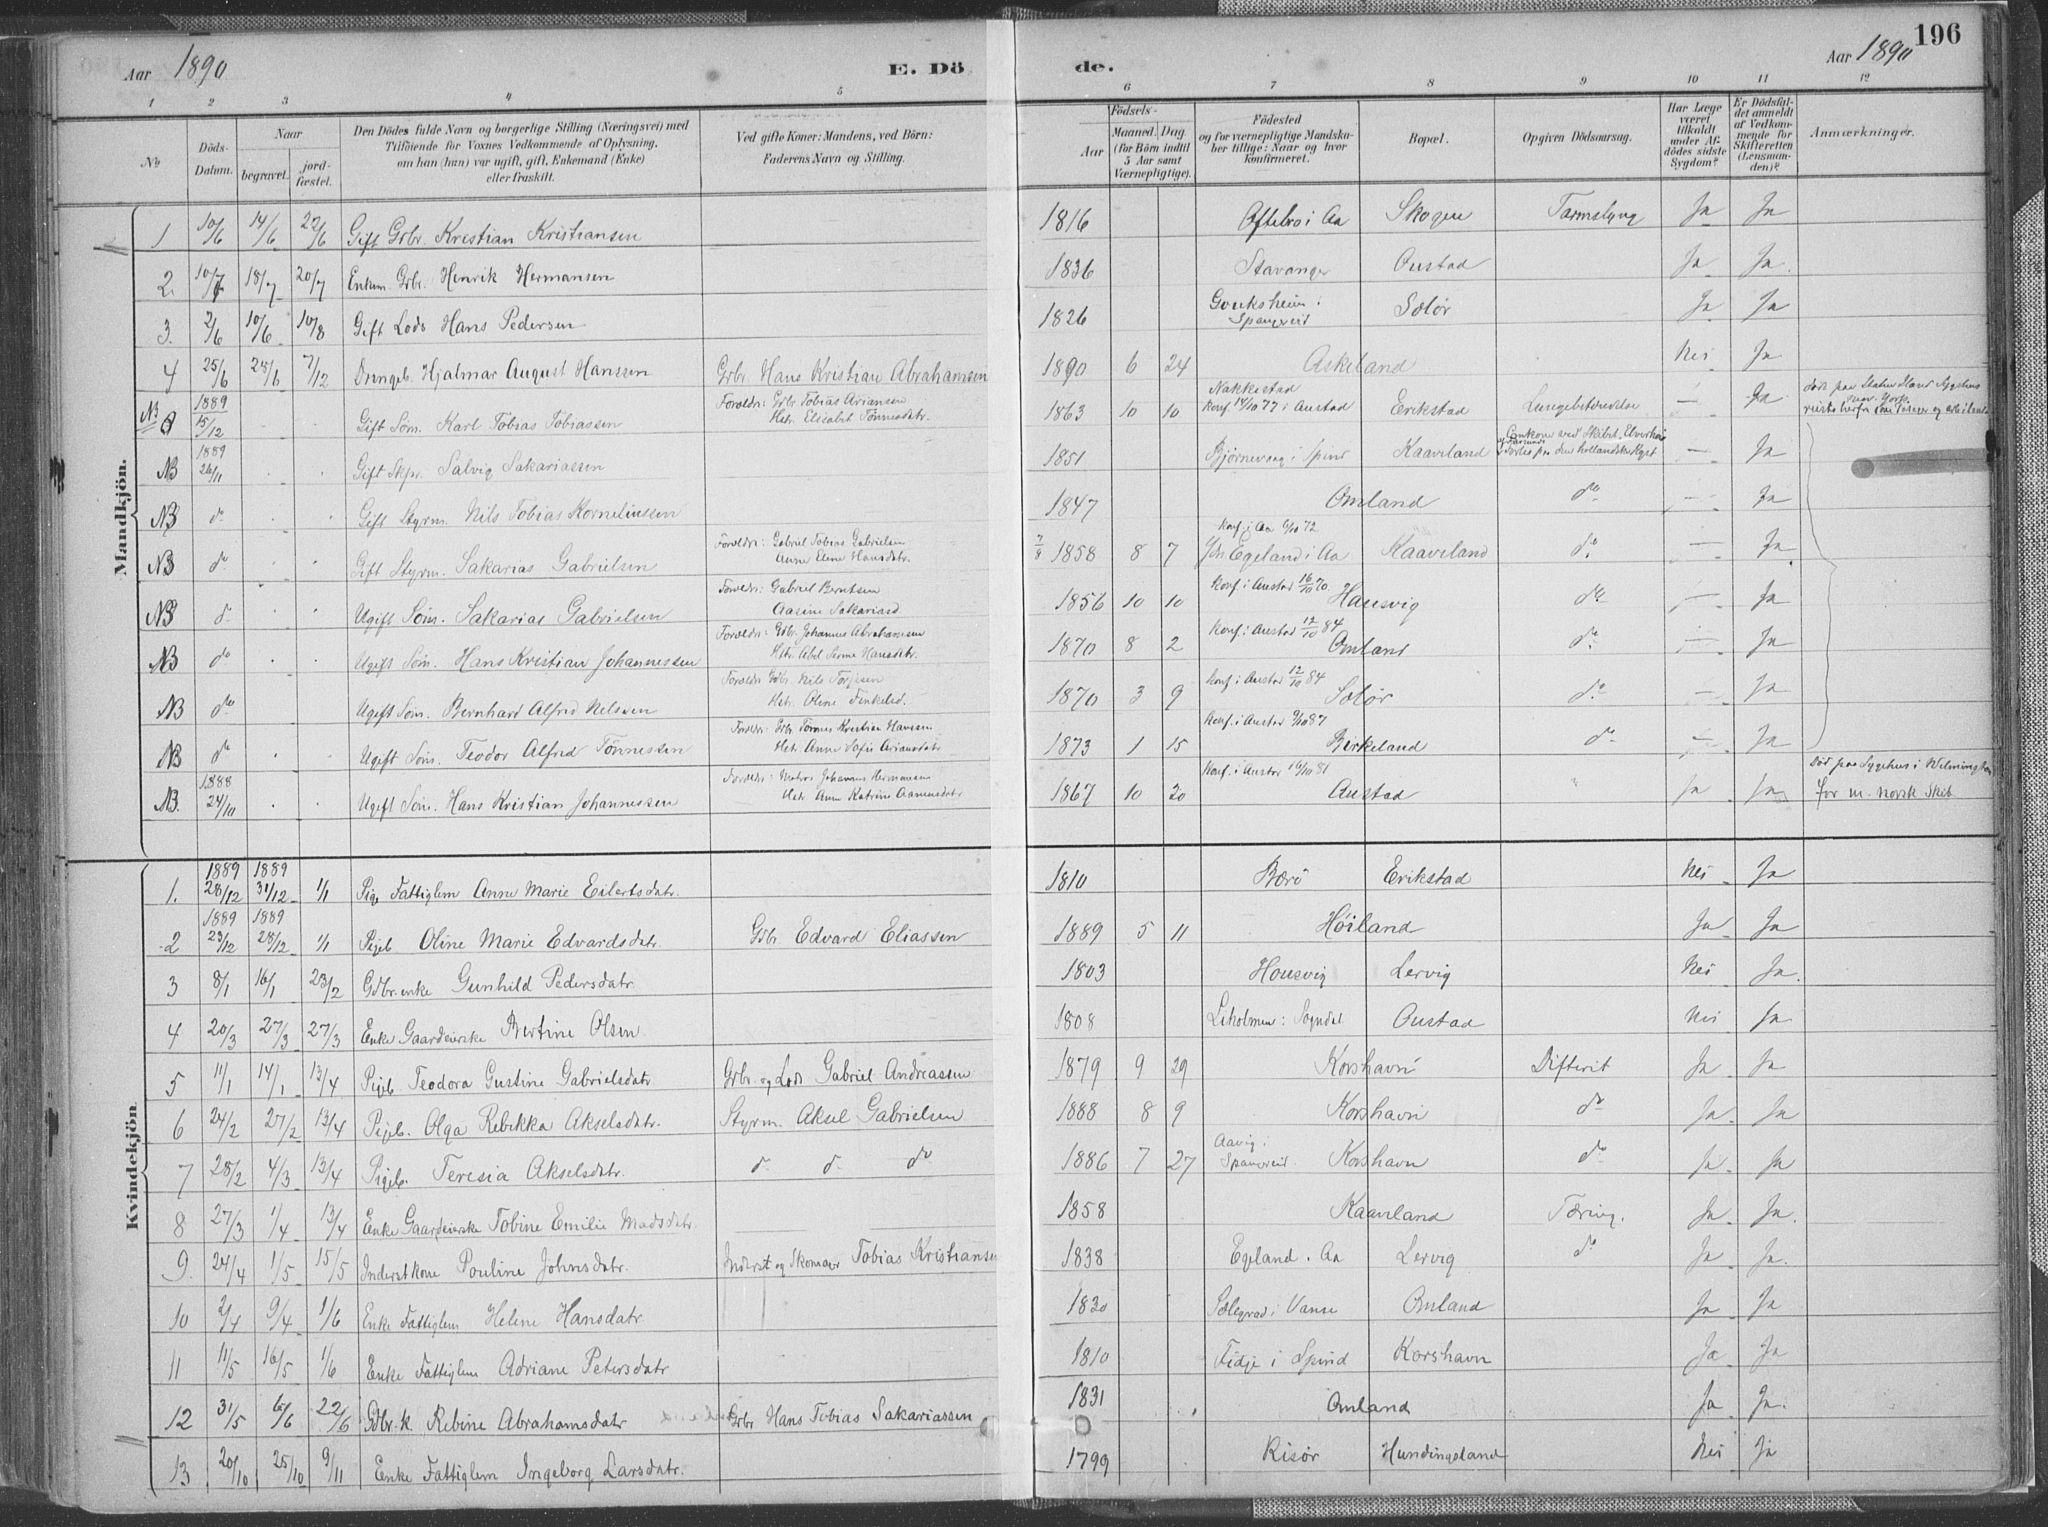 Aar 1890
E. Döde.
Aar 1890 196
1 2 3 4 5 6 7 8 9 10 11 12
No
Döds-Datum.
Naar
begravet.
jord-fæstet.
Den Dödes fulde Navn og borgerlige Stilling (Næringsvei) med
Tilföiende for Voxnes Vedkommende af Oplysning,
om han (hun) var ugift, gift, Enkemand (Enke)
eller fraskilt.
Ved gifte Koner: Mandens, ved Börn:
Faderens Navn og Stilling.
Födsels-
Aar
Maaned. Dag.
(for Börn indtil
5 Aar samt
Værnepligtige).
Födested
og for værnepligtige Mandska-
ber tillige: Naar og hvor
konfirmeret.
Bopæl.
Opgiven Dödsaarsag.
Har Læge
været
tilkaldt
under Af-
dödes sidste
Sygdom?
Er Dödsfal-
det anmeldt
af Vedkom-
mende for
Skifteretten
(Lensman-
den)?
Anmærkninger.
Mandkjön.
1 10/6 14/6 22/6 Gift Grbr. Kristian Kristiansen 1816 Oftebro i Aa Skogen Tarmslyng Ja Ja
2. 10/7 18/7 20/7 Enkm. Grbr. Henrik Hermansen 1836 Stavanger Oustad Ja Ja.
3. 2/6 10/6 10/8 Gift Lods Hans Pedersen 1826 Gouksheim i Spangereid Sælør Ja Ja
4 25/6 28/6 7/12 Drengeb. Hjalmar August Hanssen Grbr. Hans Kristian Abrahamsen 1890 6 24 Askeland Nei Ja
NB 1889 15/12 Gift Søm. Karl Tobias Tobiassen Foreldr: Grbr Tobias Ariansen Hstr. Elisabet Tønnesdatr. 1863 10 10 Nakkestad Konf. 14/10 77 i Austad Erikstad Lungebetændelse — Ja
NB 1889 26/11 Gift Skpr. Salvig Sakariassen 1851 Bjørnevaag i Spind Kaaveland Omkom ved Skibet Elverhøi Forlis paa den hollandske Kyst — Ja
NB do Gift Styrm. Nils Tobias Korneliussen 1847 Omland do — Ja
NB do Gift Styrm. Sakarias Gabrielsen Foreldr: Gabriel Tobias Gabrielsen Anne Elene Hansdatr. 7/8 1858 8 7 Konf. i Aa 6/10 72 Ydr. Egeland i Aa Kaaveland do — Ja
NB do Ugift Søm. Sakarias Gabrielsen Foreldr: Gabriel Berntsen Aasine Sakariasd 1856 10 10 Konf. i Austad 16/10 70 Hausvig do — Ja
NB do Ugift Søm. Hans Kristian Johannessen Foreldr: Grbr. Johannes Abrahamsen Hstr. Abel Serine Hansdatr. 1870 8 2 Konf. i Austad 12/10 84 Omland do — Ja
NB do Ugift Søm. Bernhard Alfred Nilssen Foreldr Grbr. Nils Hstr. Oline 1870 3 9 Konf. i Austad 12/10 84 Sælør do — Ja
NB do Ugift Søm. Teodor Alfred Tönnessen Foreldr: Grbr. Tønnes Kristian Hanssen Hstr. Anne Sofie Ariansdatr 1873 1 15 Konf. i Austad 9/10 87 Birkeland do — Ja
NB. 1888 24/10 Ugift Søm. Hans Kristian Johannessen Foreldr: Matros Johannes Hermansen Hstr. Anne Katrine Aanensdatr 1867 10 20 Konf. i Austad 16/10 81 Austad " Ja Ja Død paa Sygehus i Wilmington for m. norsk Skib
Kvindekjön.
1. 1889 28/12 1889 31/12 1/1 Pige Fattiglem Anne Marie Eilertsdatr. 1810 Bærö Erikstad Nei Ja
2 1889 23/12 1889 28/12 1/1 Pigeb. Oline Marie Edvardsdatr. Gdbr. Edvard Eliassen 1889 5 11 Höiland Ja Ja
3 8/1 16/1 23/2 Gdbr. enke Gunhild Pedersdatr. 1803 Housvig Lervig Nei Ja.
4 20/3 27/3 27/3 Enke Gaardeierske Bertine Olsen 1808 Liholmen i Sogndal Oustad Nei Ja
5 11/1 14/1 13/4 Pigeb. Teodora Gustine Gabrielsdatr. Grbr. og Lods Gabriel Andreassen 1879 9 29 Korshavn Difterit Ja Ja
6 24/2 27/2 13/4 Pigeb. Olga Rebekka Akselsdatr. Styrm. Aksel Gabrielsen 1888 8 9 Korshavn do Ja Ja
7 28/2 4/3 13/4 Pigeb. Teresia Akselsdatr. do do do 1886 7 27 Aavig i Spangereid. Korshavn do Ja Ja
8 27/3 1/4 13/4 Enke Gaardeierske Tobine Emilie Madsdatr. 1858 Kaaveland Tæring. Ja Ja.
9. 24/4 1/5 15/5 Inderstkone Pouline Johnsdatr. Inderst og Skomager Tobias Kristiansen 1838 Egeland i Aa Lervig do Ja Ja.
10 2/4 9/4 1/6 Enke Fattiglem Helene Hansdatr. 1830 i Vanse Omland Ja Ja
11 11/5 16/5 1/6 Enke Fattiglem Adriane Petersdatr 1810 Fidje i Spind Korshavn Ja Ja
12 31/5 6/6 22/6 Gdbr. k. Rebine Abrahamsdatr Grbr Hans Tobias Sakariassen 1831 Omland Ja Ja.
13 20/10 25/10 9/11 Enke Fattiglem Ingeborg Larsdatr. 1799 Risør Hundingsland Nei Ja